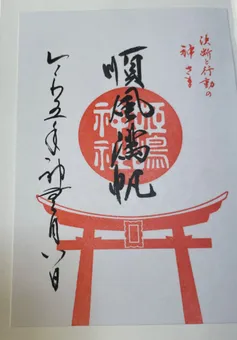 決断と行動の
神さま
順風満帆
姫嶋
神社
令和五年神無月八日